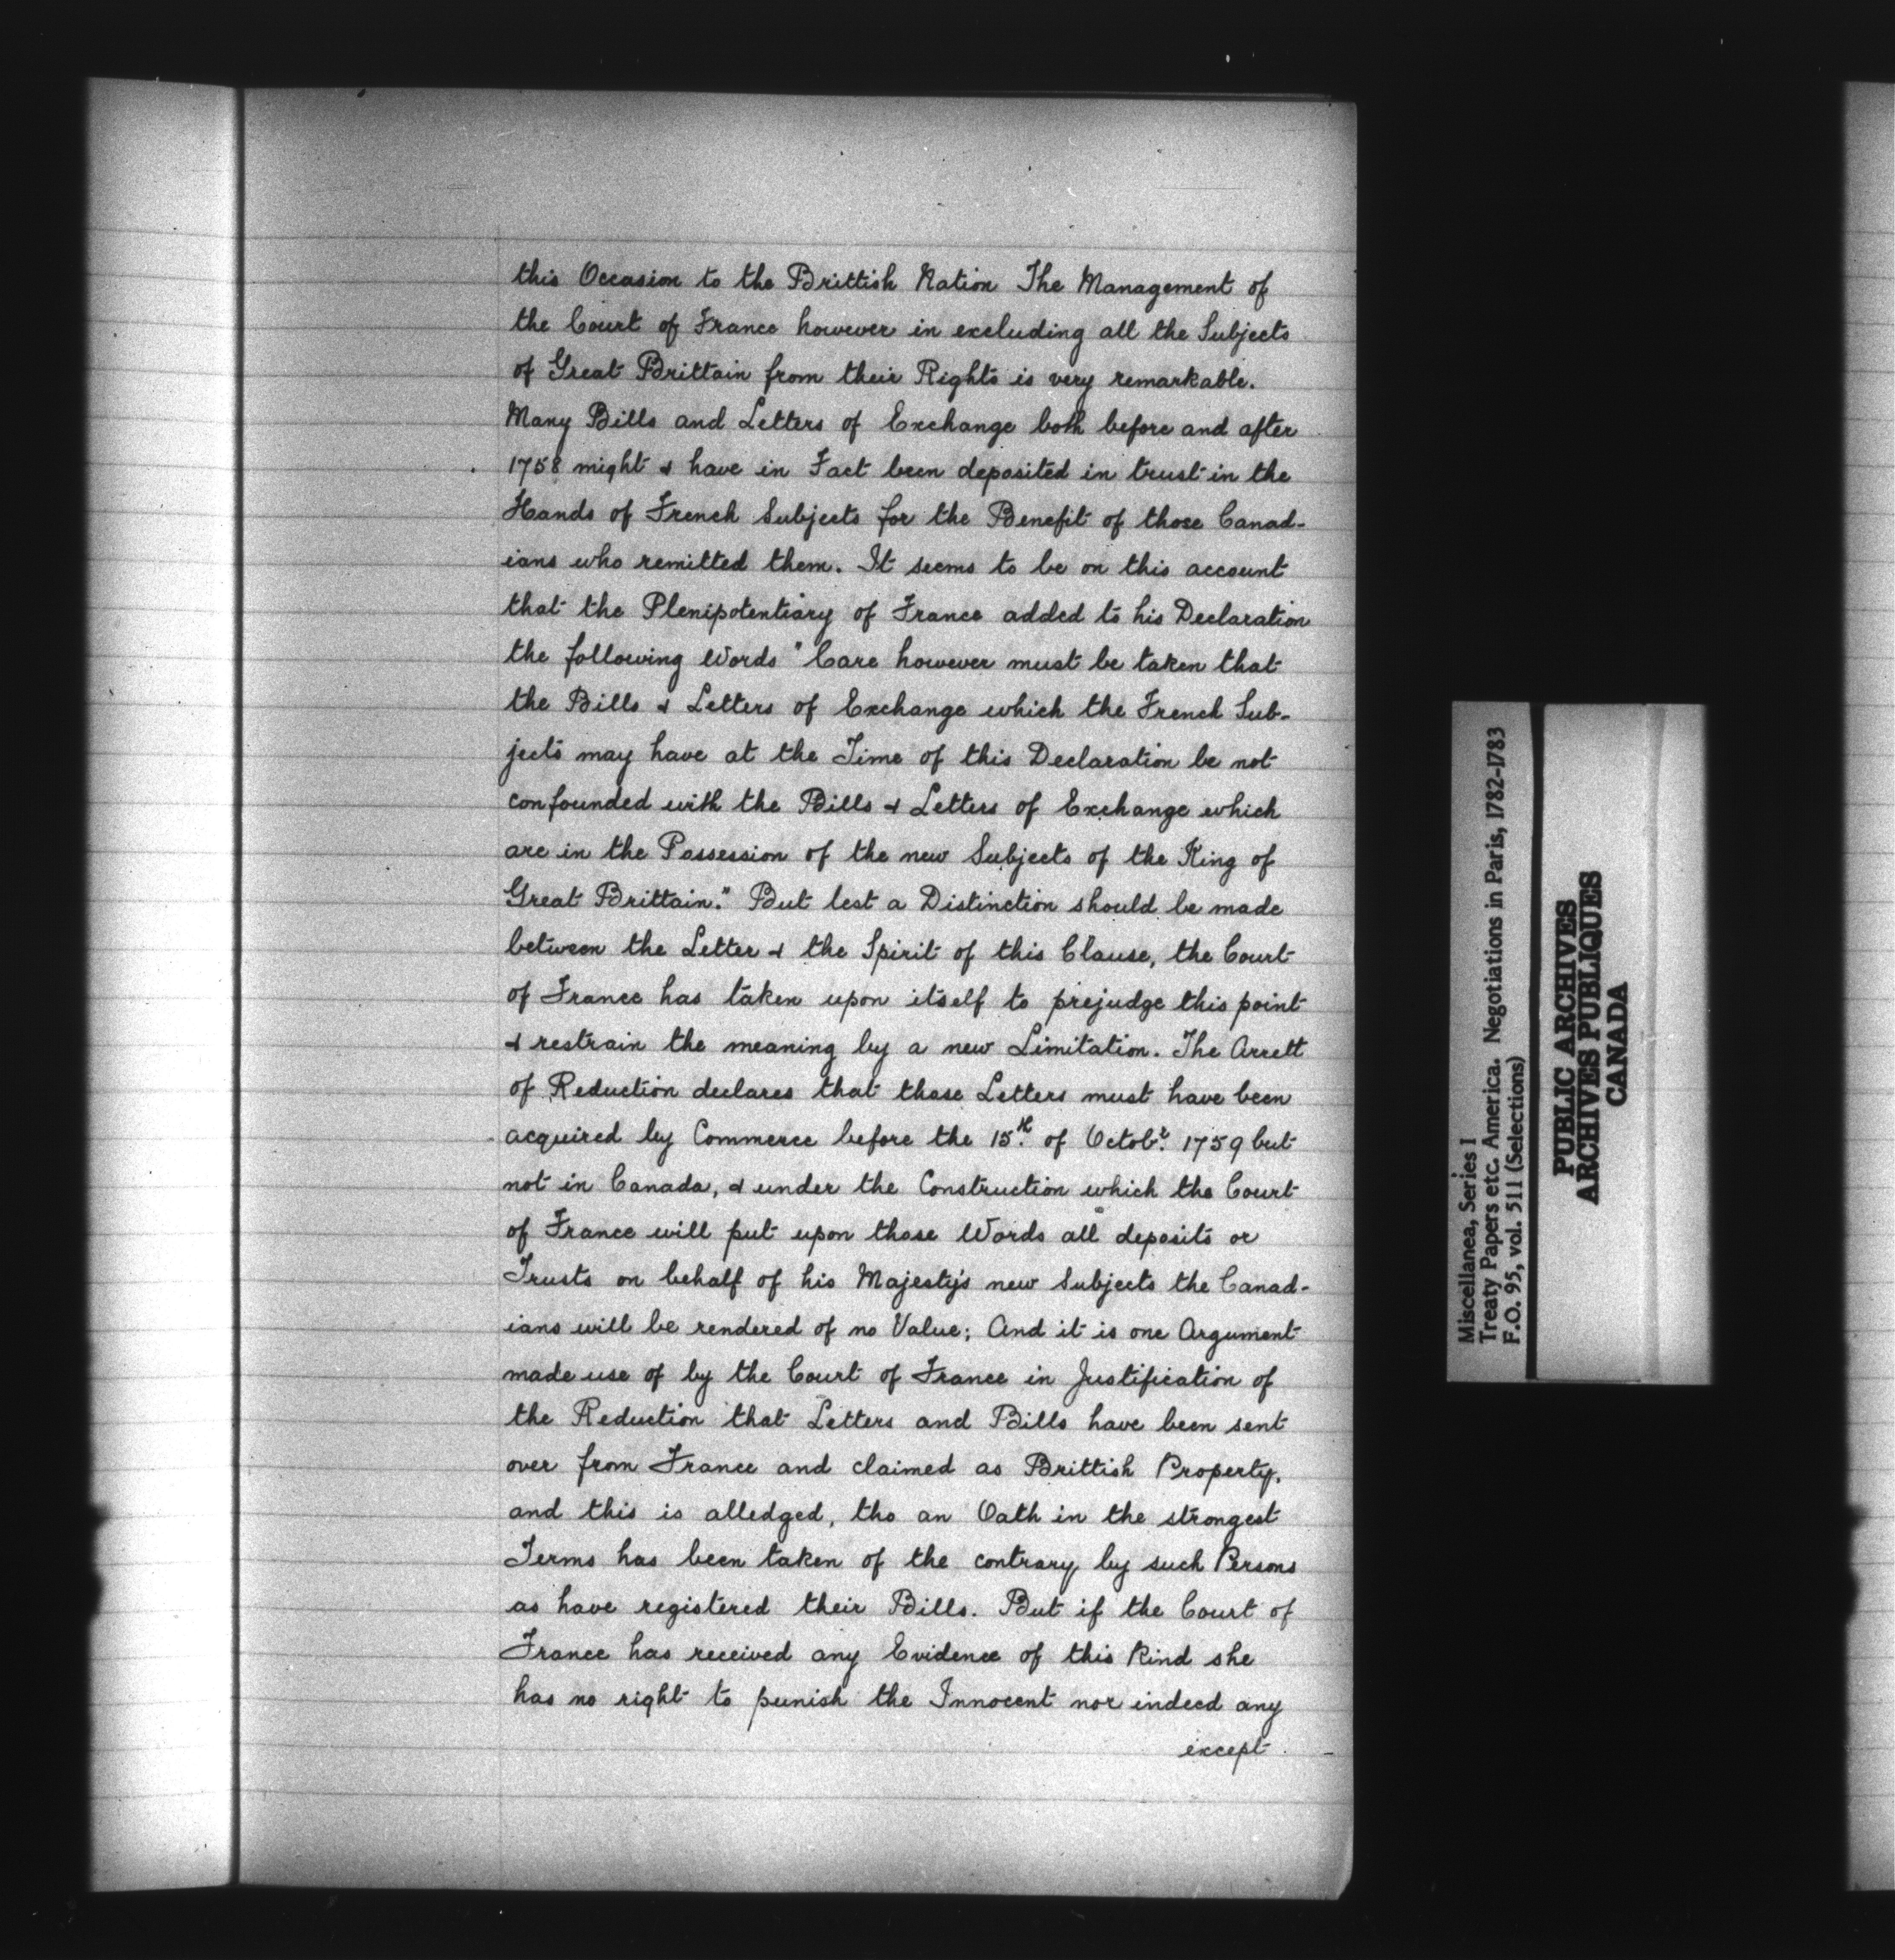 this Occasion to the Brittish Nation The Management of
the Court of France however in excluding all the Subjects
of Great Brittain from their Rights is very remarkable.
Many Bills and Letters of Exchange both before and after
1758 might & have in Fact been deposited in trust in the
Hands of French Subjects for the Benefit of those Canad-
ians who remitted them. It seems to be on this account
that the Plenipotentiary of France added to his Declaration
the following Words "Care however must be taken that
the Bills & Letters of Exchange which the French Sub-
jects may have at the Time of this Declaration be not
confounded with the Bills & Letters of Exchange which
are in the Possession of the new Subjects of the King of
Great Brittain." But lest a Distinction should be made
between the Letter & the Spirit of this Clause, the Court
of France has taken upon itself to prejudge this point
& restrain the meaning by a new Limitation. The Arrett
of Reduction declares that those Letters must have been
acquired by Commerce before the 15th. of Octobr. 1759 but
not in Canada, & under the Construction which the Court
of France will put upon those Words all deposits or
Trusts on behalf of his Majesty's new Subjects the Canad-
ians will be rendered of no Value; And it is one Argument
made use of by the Court of France in Justification of
the Reduction that Letters and Bills have been sent
over from France and claimed as Brittish Property,
and this is alledged, tho an Oath in the strongest
Terms has been taken of the contrary by such Persons
as have registered their Bills. But if the Court of
France has received any Evidence of this Kind she
has no right to punish the Innocent nor indeed any
except
Miscellanea, Series I
Treaty Papers etc. America. Negotiations in Paris, 1782-1783
F.O. 95, vol. 511 (Selections)
PUBLIC ARCHIVES
ARCHIVES PUBLIQUES
CANADA